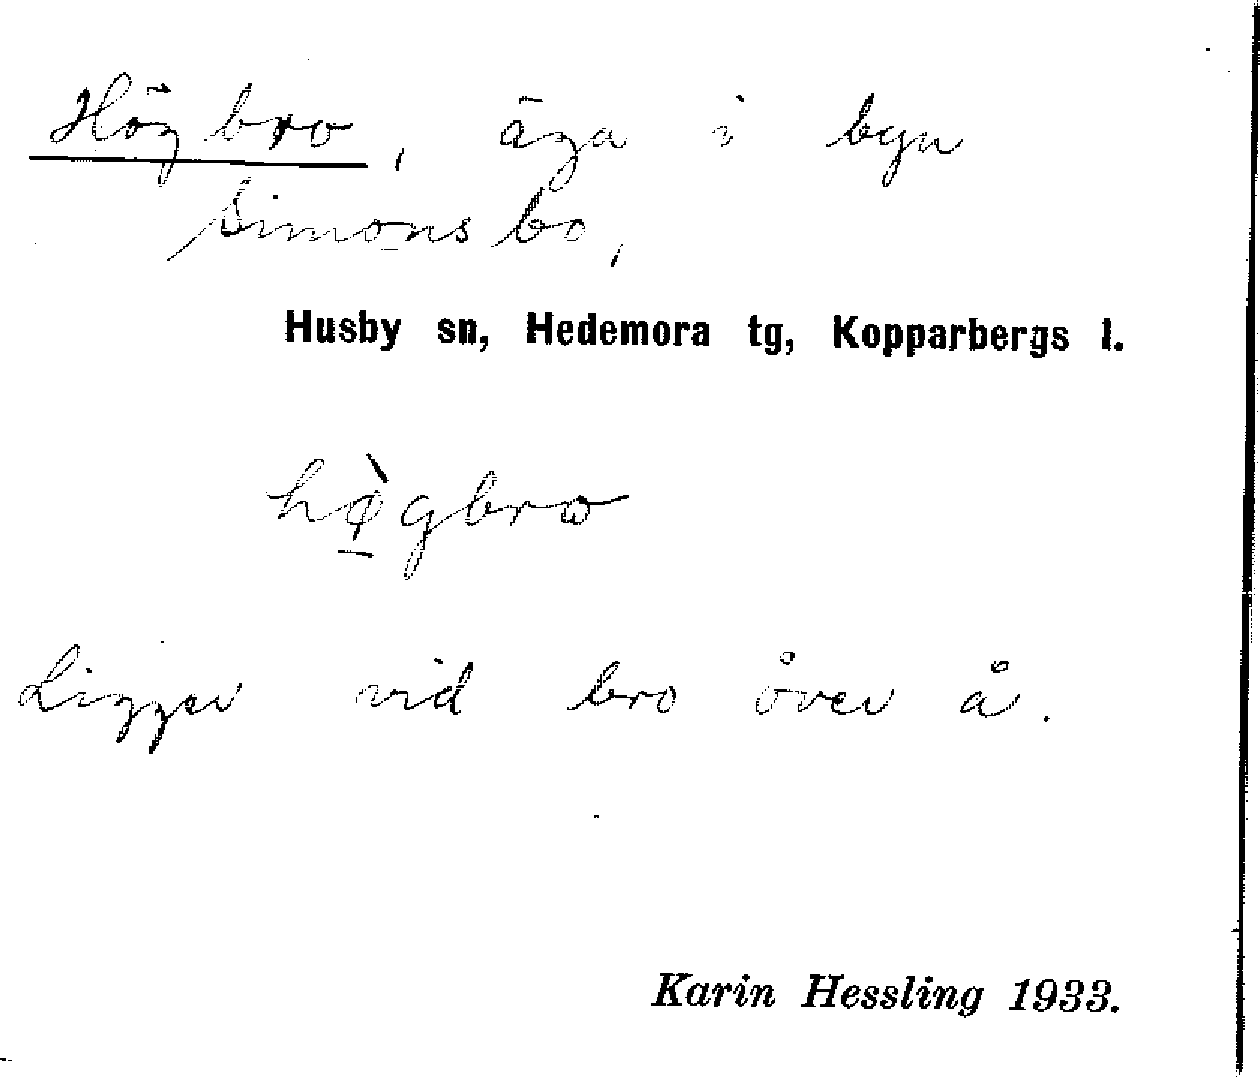 Högbro, äga i byn
Simonsbo,
Husby sn, Hedemora tg, Kopparbergs l.
hø̱̀gbro
Ligger vid bro över å.
Karin Hessling 1933.